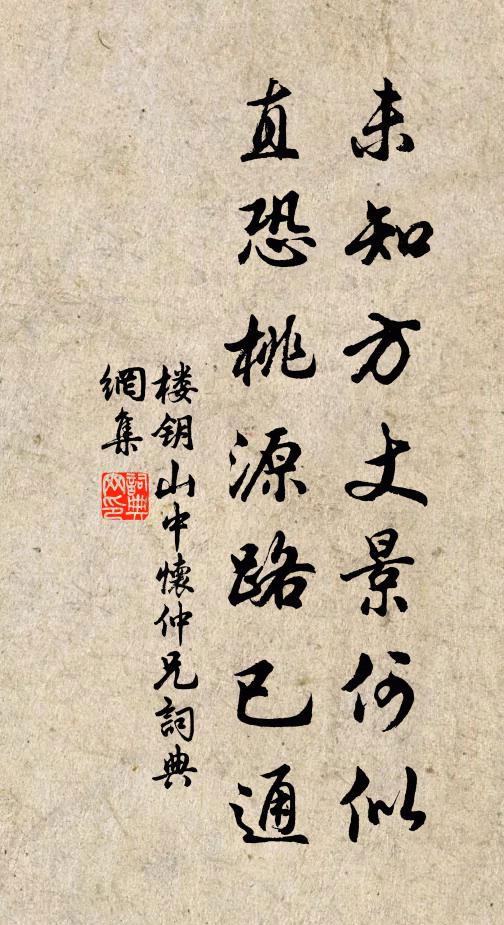 未知方丈景何似
直恐桃源路已通
楼钥山中懷仲兄詞典
網集
詞典
网印